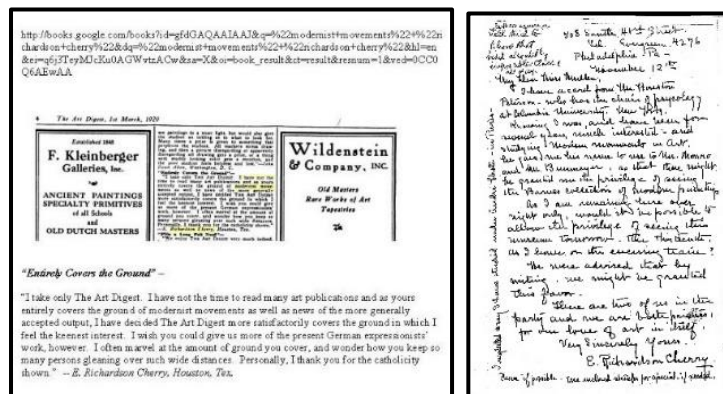 http://books.google.com/books?id=gfdGAQAAIAAJ&q=%22modernist+movements%22+%22ri
chardson+cherry%22&dq=%22modernist+movements%22+%22richardson+cherry%22&hl=en
Q6AEwAA
4 The Art Digest, 1st March, 1929
Established 1848
F. Kleinberger
Galleries, Inc.
ANCIENT PAINTINGS
SPECIALTY PRIMITIVES
of all Schools
and
OLD DUTCH MASTERS
"Entirely Covers the Ground"
E. Richardson Cherry, Houston, Tex.
Wildenstein
& Company, INC.
Old Masters
Rare Works of Art
Tapestries
"Entirely Covers the Ground" –
"I take only The Art Digest. I have not the time to read many art publications and as yours
entirely covers the ground of modernist movements as well as news of the more generally
accepted output, I have decided The Art Digest more satisfactorily covers the ground in which I
feel the keenest interest. I wish you could give us more of the present German expressionists'
work, however. I often marvel at the amount of ground you cover, and wonder how you keep so
many persons gleaning over such wide distances. Personally, I thank you for the catholicity
shown." -- E. Richardson Cherry, Houston, Tex.
408 South 41st Street
Evergreen 4276
Philadelphia Pa -
November 12th
My Dear Miss Mullen,
I have a card from Mr Houston
Peterson - who has the chair of
at Columbia University New York.
Knowing I was, and have been for
several years, much interested - and
studying Modern movements in Art.
he gave me his name to use to Mr Munro
and Mr Buermeyer, so that there might
be granted me the privilege of seeing
the Barnes collection of modern paintings.
As I am remaining here over
night only, would it be possible to
allow the privilege of seeing this
museum tomorrow - the thirteenth,
as I leave on the evening train?
We were advised that by
writing, we might be granted
this favor.
There are two of us in the
party and we are both painters,
for our love of art in itself.
Very Sincerely Yours.
E. Richardson Cherry